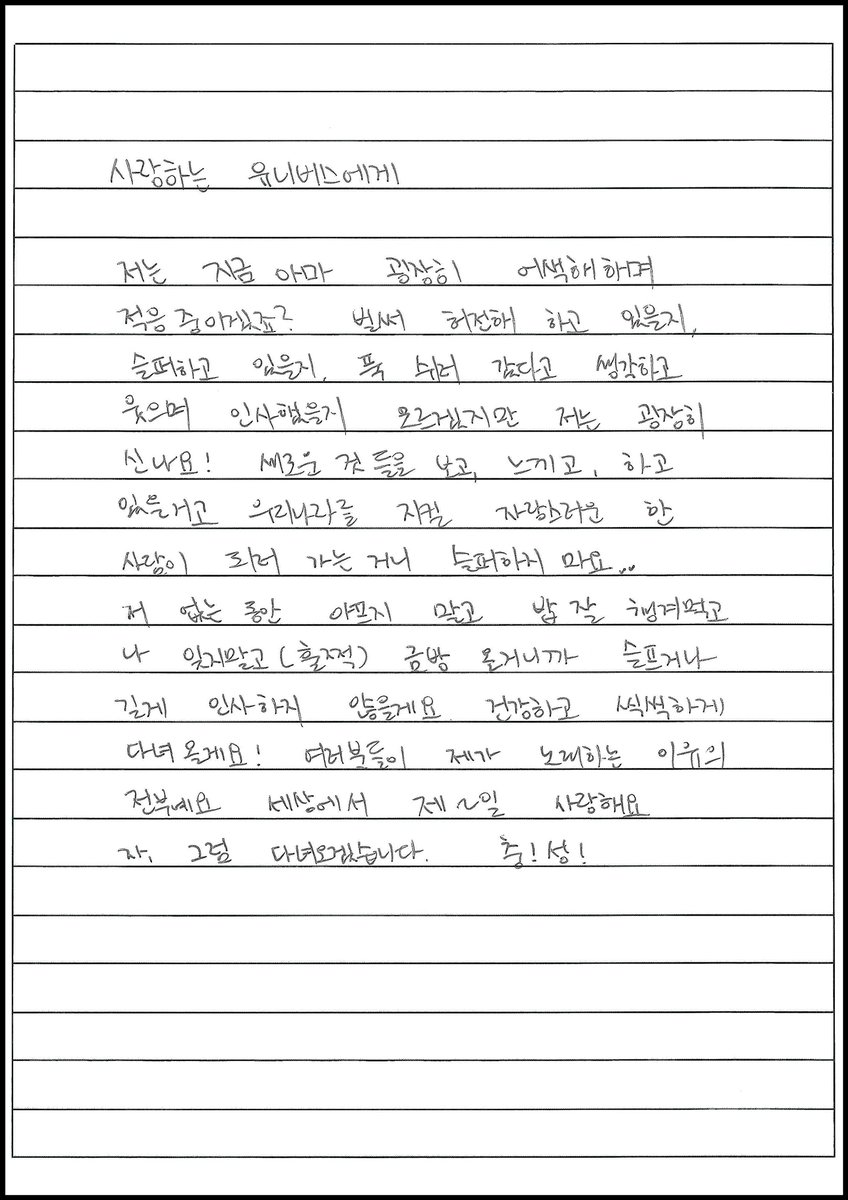 사랑하는 유니버스에게
저는 지금 아마 굉장히 어색해하며
적응 중이겠죠? 벌써 허전해 하고 있을지,
슬퍼하고 있을지, 푹 쉬러 갔다고 생각하고
웃으며 인사했을지 모르겠지만 저는 굉장히
신나요! 새로운 것들을 보고, 느끼고, 하고
있을거고 우리나라를 지킬 자랑스러운 한
사람이 되러 가는 거니 슬퍼하지 마요..
저 없는 동안 아프지 말고 밥 잘 챙겨먹고
나 잊지말고(훌쩍) 금방 올거니까 슬프거나
길게 인사하지 않을게요 건강하고 씩씩하게
다녀올게요! 여러분들이 제가 노래하는 이유의
전부예요 세상에서 제~일 사랑해요
자, 그럼 다녀오겠습니다. 충!성!